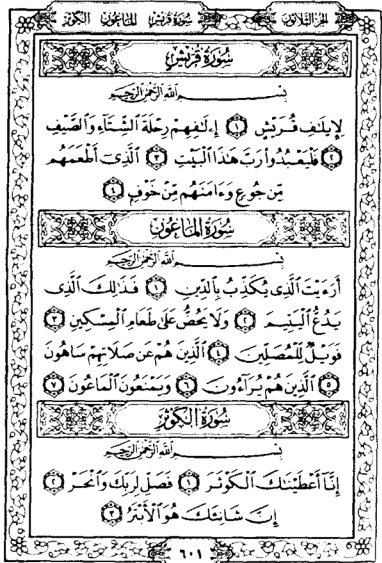 الجزء الثلاثون سورة قريش الماعون الكوثر
سُورَةُ قُرَيْشٍ
بِسْمِ ٱللَّهِ ٱلرَّحْمَٰنِ ٱلرَّحِيمِ
لِإِيلَٰفِ قُرَيْشٍ ١ إِۦلَٰفِهِمْ رِحْلَةَ ٱلشِّتَآءِ وَٱلصَّيْفِ
٢ فَلْيَعْبُدُوا۟ رَبَّ هَٰذَا ٱلْبَيْتِ ٣ ٱلَّذِىٓ أَطْعَمَهُم
مِّن جُوعٍ وَءَامَنَهُم مِّنْ خَوْفٍ ٤
سُورَةُ المَاعُونِ
بِسْمِ ٱللَّهِ ٱلرَّحْمَٰنِ ٱلرَّحِيمِ
أَرَءَيْتَ ٱلَّذِى يُكَذِّبُ بِٱلدِّينِ ١ فَذَٰلِكَ ٱلَّذِى
يَدُعُّ ٱلْيَتِيمَ ٢ وَلَا يَحُضُّ عَلَىٰ طَعَامِ ٱلْمِسْكِينِ ٣
فَوَيْلٌ لِّلْمُصَلِّينَ ٤ ٱلَّذِينَ هُمْ عَن صَلَاتِهِمْ سَاهُونَ
٥ ٱلَّذِينَ هُمْ يُرَآءُونَ ٦ وَيَمْنَعُونَ ٱلْمَاعُونَ ٧
سُورَةُ الكَوْثَرِ
بِسْمِ ٱللَّهِ ٱلرَّحْمَٰنِ ٱلرَّحِيمِ
إِنَّآ أَعْطَيْنَٰكَ ٱلْكَوْثَرَ ١ فَصَلِّ لِرَبِّكَ وَٱنْحَرْ ٢
إِنَّ شَانِئَكَ هُوَ ٱلْأَبْتَرُ ٣
٦٠١